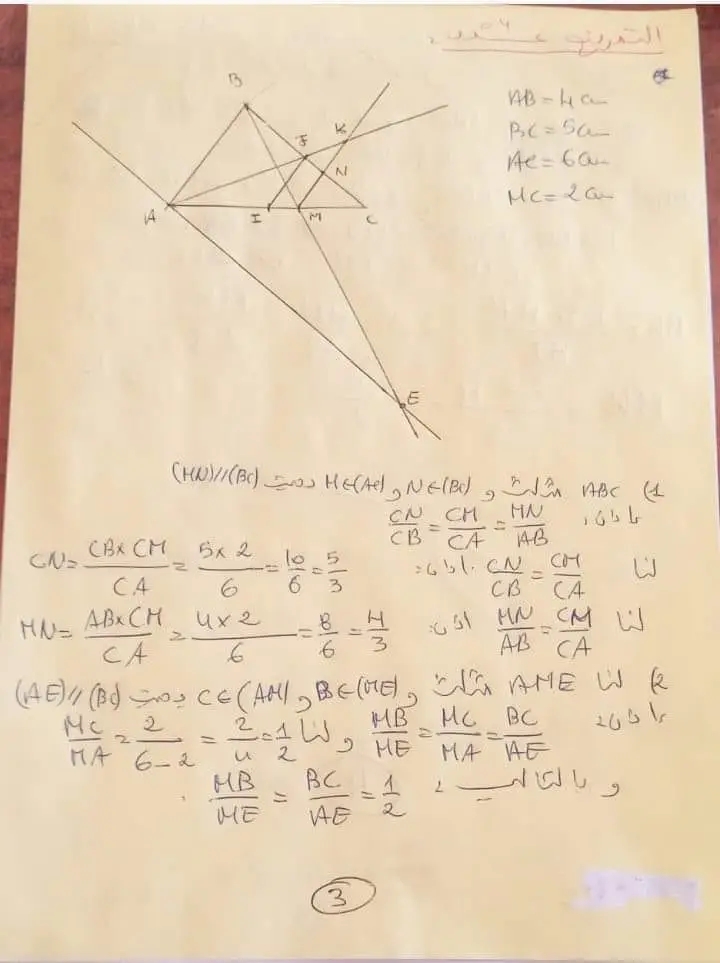 التمرين عشرون:
AB = 4cm
BC = 5cm
AC = 6cm
MC = 2cm
B
J
K
N
A
I
M
C
E
1) ABC مثلث و N∈(BC) و M∈(AC) بحيث (MN)//(BC)
بإذن: CN/CB = CM/CA = MN/AB
لنا CN/CB = CM/CA إذن: CN = CB×CM/CA = 5×2/6 = 10/6 = 5/3
لنا MN/AB = CM/CA إذن: MN = AB×CM/CA = 4×2/6 = 8/6 = 4/3
2) لنا AME مثلث و B∈(ME) و C∈(AM) بحيث (AE)//(BC)
بإذن: MB/ME = MC/MA = BC/AE و لنا MC/MA = 2/6-2 = 2/4 = 1/2
و بالتالي: MB/ME = BC/AE = 1/2
3